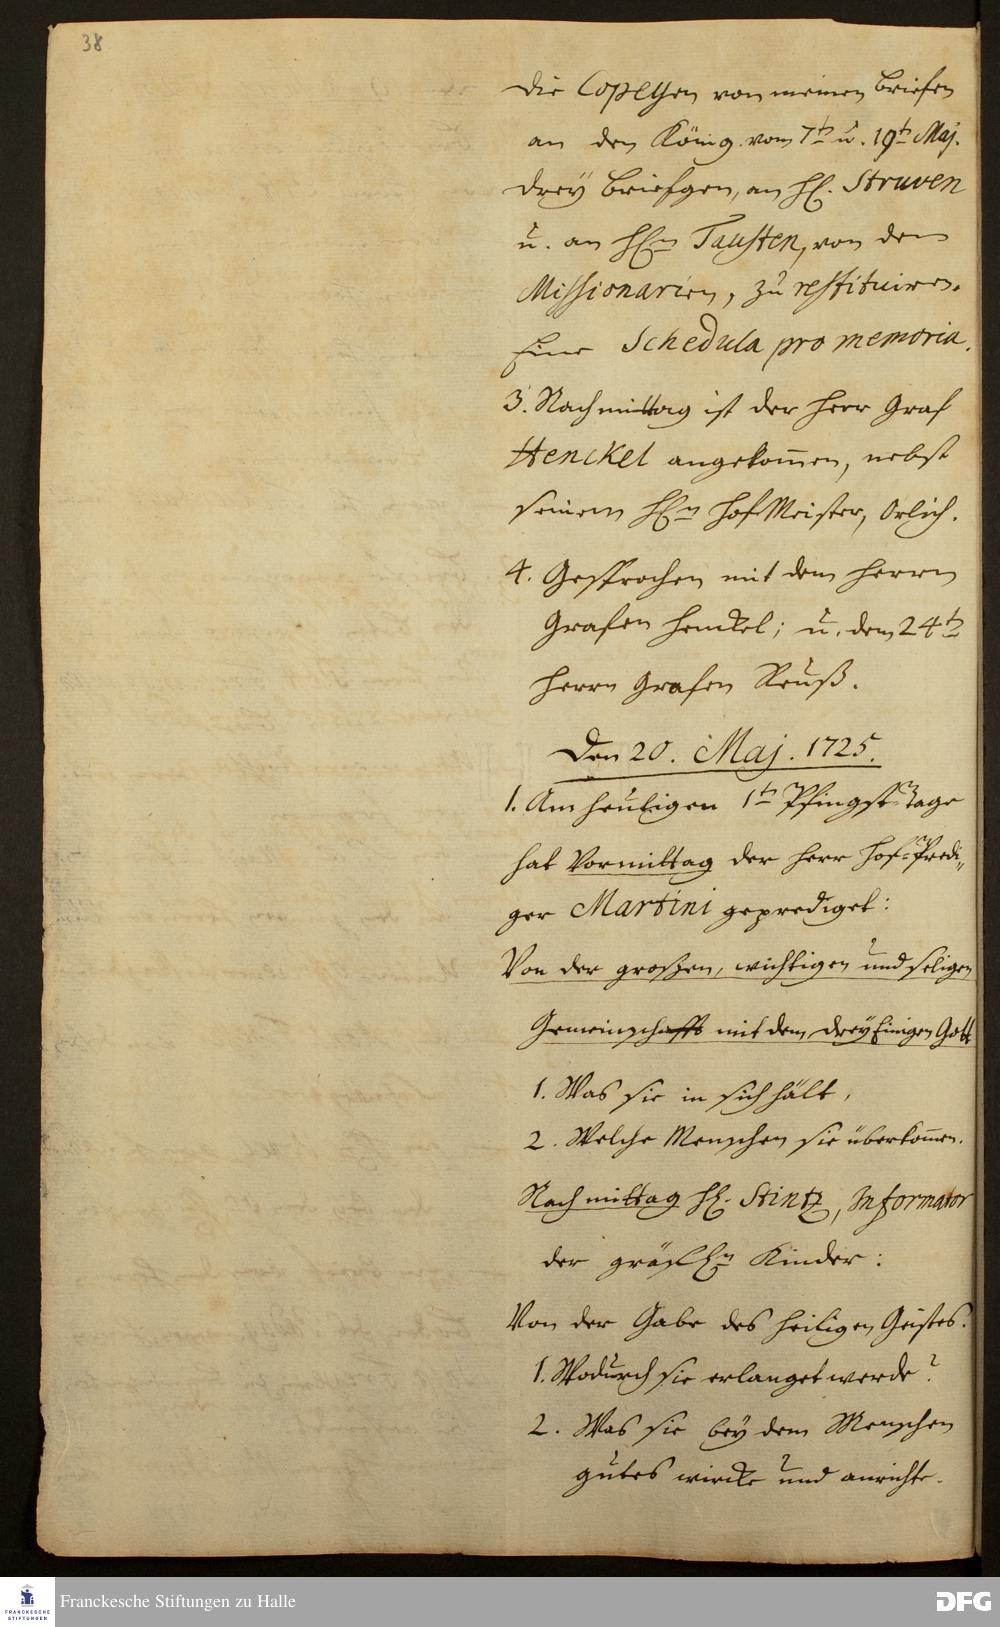 38
die Copeyen von meinen briefen
an den König vom 7t. u. 19t. Maj.
drey briefgen, an H. Struven
u. an HEn Tausten, von dem
Missionarien, zu restituiren.
Eine Schedula pro memoria.
3. Nachmittag ist der Herr Graf
Henckel angekom̅en, nebst
seinem HEn HofMeister, Orlich.
4. Gesprochen mit dem Herrn
Grafen Henckel; u. dem 24t.
Herrn Grafen Reuß.
Den 20. Maj. 1725.
1. Am heutigen 1t. Pfingst-Tage
hat Vormittag der Herr Hof-Predi-
ger Martini geprediget:
Von der großen, wichtigen und seligen
Gemeinschafft mit dem dreyEinigen Gott
1. Was sie in sich hält,
2. Welche Menschen sie überkom̅en.
Nachmittag H. Stintz, Informator
der gräfLEn Kinder:
Von der Gabe des heiligen Geistes.
1. Wodurch sie erlanget werde?
2. Was sie bey dem Menschen
gutes wircke und anrichte.
Franckesche Stiftungen zu Halle
FRANCKESCHE
STIFTUNGEN
DFG